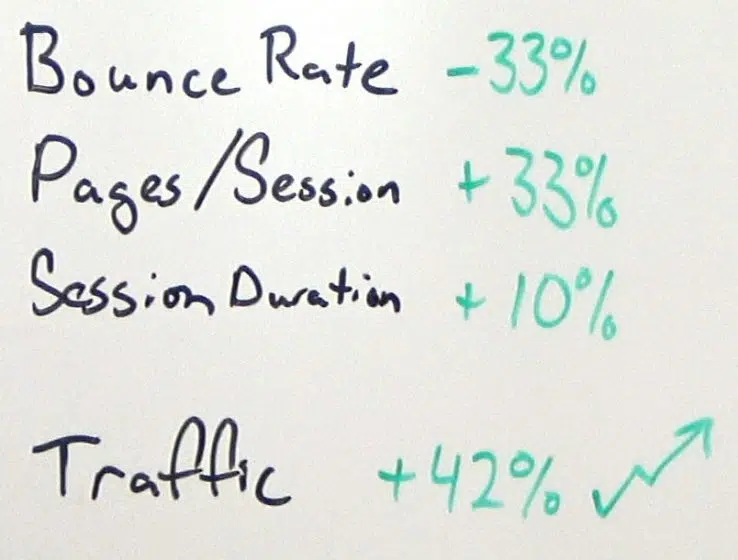 Bounce Rate -33%
Pages/Session +33%
Session Duration +10%
Traffic +42%